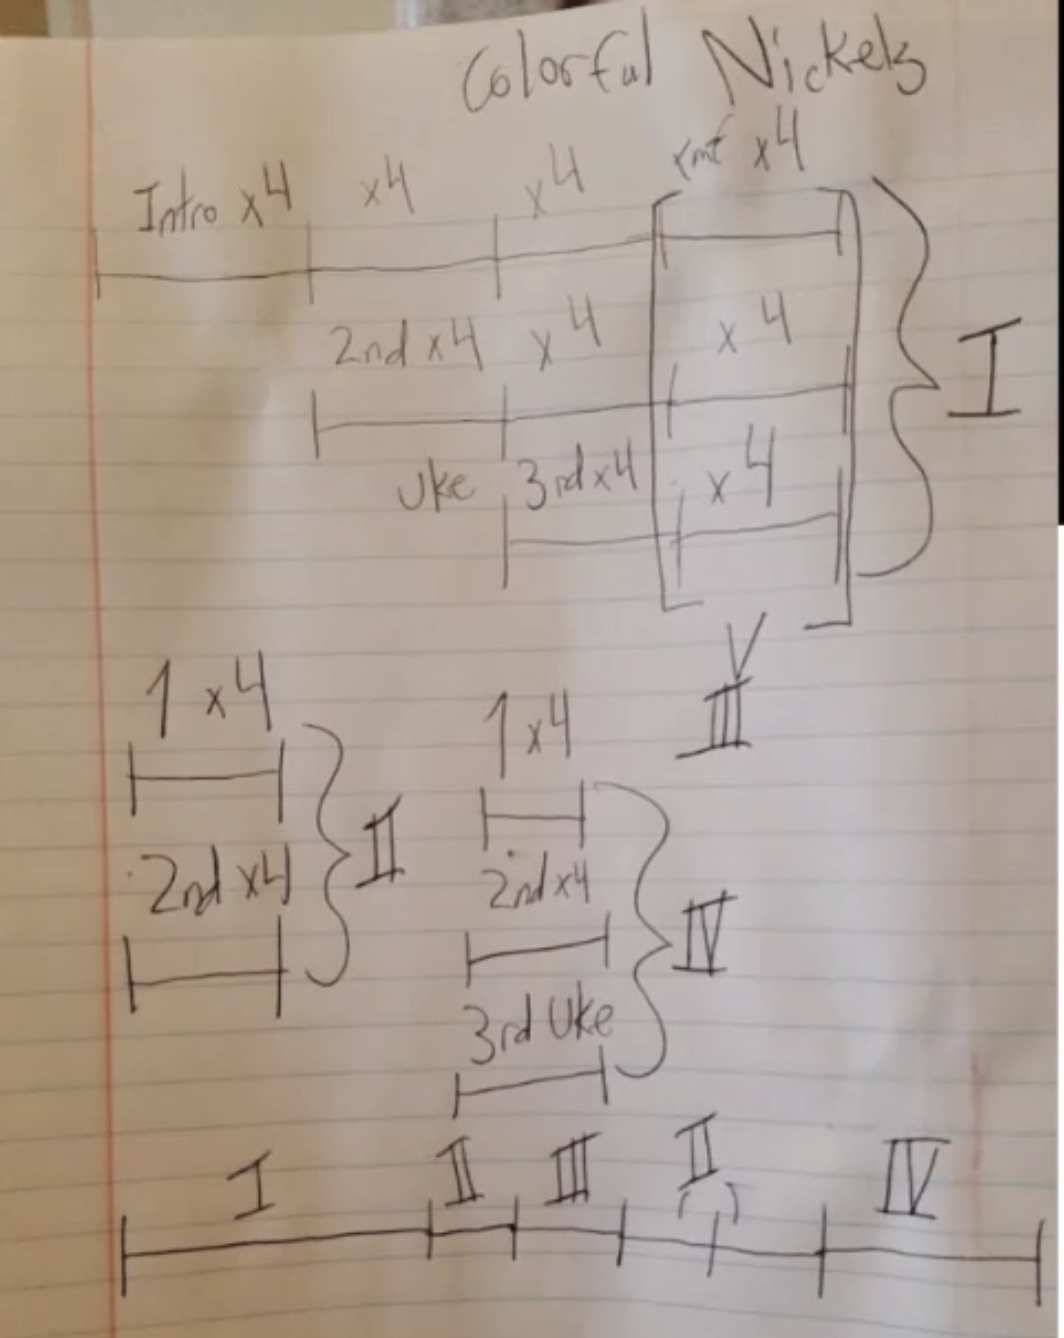 Colorful Nickels
Intro x4 x4 x4 x4
2nd x4 x4 x4
Uke 3rd x4 x4
I
V
III
1 x4
2nd x4
II
1 x4
2nd x4
3rd Uke
IV
I II III II IV